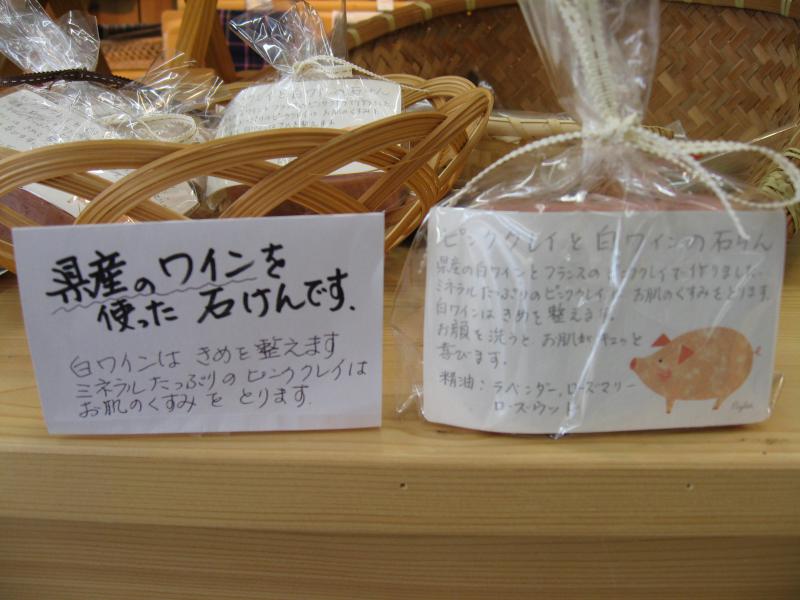 県産のワインを
使った 石けんです.
白ワインは きめを 整えます
ミネラルたっぷりの ピンククレイは
お肌のくすみを とります.
ピンククレイと 白ワインの石けん
県産の白ワインと フランスの ピンククレイで作りました.
ミネラルたっぷりのピンククレイは お肌のくすみをとります.
白ワインは きめを 整えます.
お顔を洗うと お肌が キュッと
喜びます.
精油: ラベンダー, ローズマリー
ローズウッド
クレイと白ワインの石けん